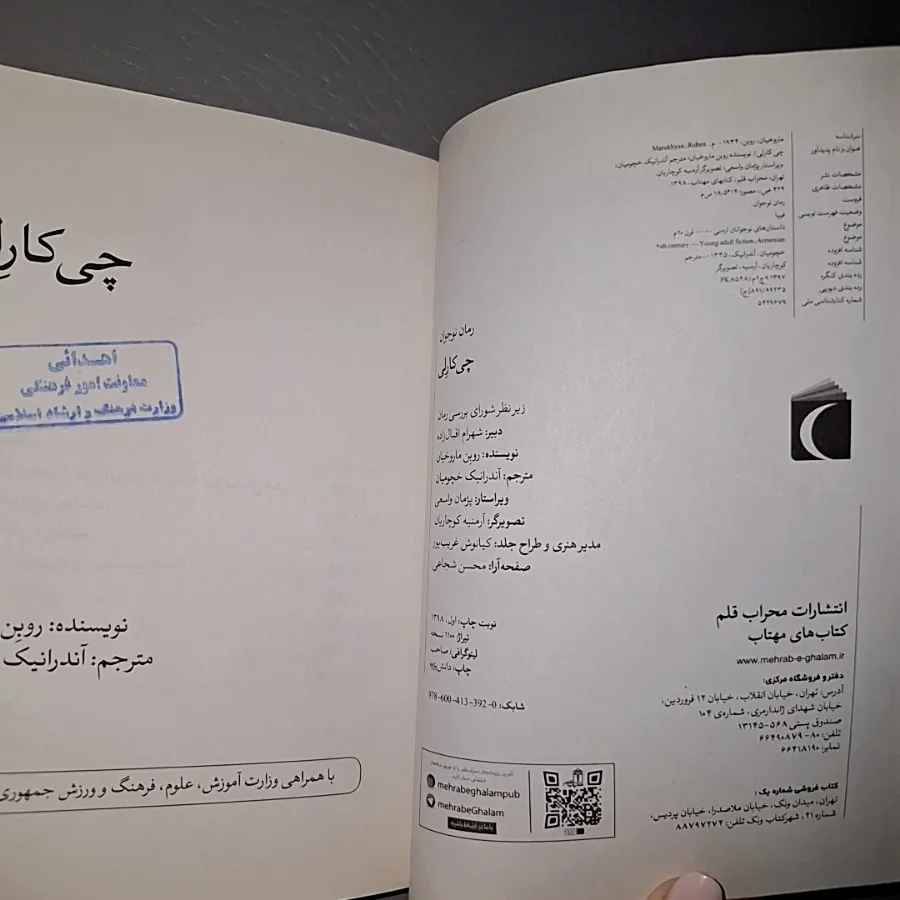 سرشناسه ماروخیان، روبن، ۱۹۳۴ - م. Marukhyan, Ruben
عنوان و نام پدیدآور چی کارلی/ نویسنده روبن ماروخیان؛ مترجم آندرانیک خچومیان؛
ویراستار پژمان واسعی؛ تصویرگر آرمنیه کوچاریان.
مشخصات نشر تهران: محراب قلم، کتابهای مهتاب، ۱۳۹۸.
مشخصات ظاهری ۴۲۴ ص.: مصور؛ ۱۴/۵×۱۸ س‌م
فروست رمان نوجوان.
وضعیت فهرست نویسی فیپا
موضوع داستان‌های نوجوانان ارمنی -- قرن ۲۰م
موضوع 20th century -- Young adult fiction, Armenian
شناسه افزوده خچومیان، آندرانیک، ۱۳۳۵ -، مترجم
شناسه افزوده کوچاریان، آرمنیه، تصویرگر
رده بندی کنگره PK۸۵۴۸/م۲چ۹ ۱۳۹۷
رده بندی دیویی ۸۹۱/۹۹۲۳۵[ج]
شماره کتابشناسی ملی ۵۴۲۹۶۷۹
رمان نوجوان
چی‌کارلی
زیر نظر شورای بررسی رمان
دبیر: شهرام اقبال‌زاده
نویسنده: روبن ماروخیان
مترجم: آندرانیک خچومیان
ویراستار: پژمان واسعی
تصویرگر: آرمنیه کوچاریان
مدیر هنری و طراح جلد: کیانوش غریب‌پور
صفحه‌آرا: محسن شجاعی
نوبت چاپ: اول، ۱۳۹۸
تیراژ: ۱۱۰۰ نسخه
لیتوگرافی: صاحب
چاپ: دانش‌پژوه
شابک: ۰-۳۹۲-۴۱۳-۶۰۰-۹۷۸
انتشارات محراب قلم
کتاب‌های مهتاب
www.mehrab-e-ghalam.ir
دفتر و فروشگاه مرکزی:
آدرس: تهران، خیابان انقلاب، خیابان ۱۲ فروردین،
خیابان شهدای ژاندارمری، شماره‌ی ۱۰۴
صندوق پستی ۵۶۸-۱۳۱۴۵
تلفن: ۸۰-۶۶۴۹۰۸۷۹
نمابر: ۶۶۴۱۸۱۹۰
کتاب فروشی شماره یک:
تهران، میدان ونک، خیابان ملاصدرا، خیابان پردیس،
شماره ۲۱، شهرکتاب ونک تلفن: ۸۸۷۹۷۲۷۴
mehrabeghalampub
mehrabeGhalam
با ما در ارتباط باشید
چی‌کارِل
اهدائی
معاونت امور فرهنگی
وزارت فرهنگ و ارشاد اسلامی
نویسنده: روبِن
مترجم: آندرانیک
با همراهی وزارت آموزش، علوم، فرهنگ و ورزش جمهوری